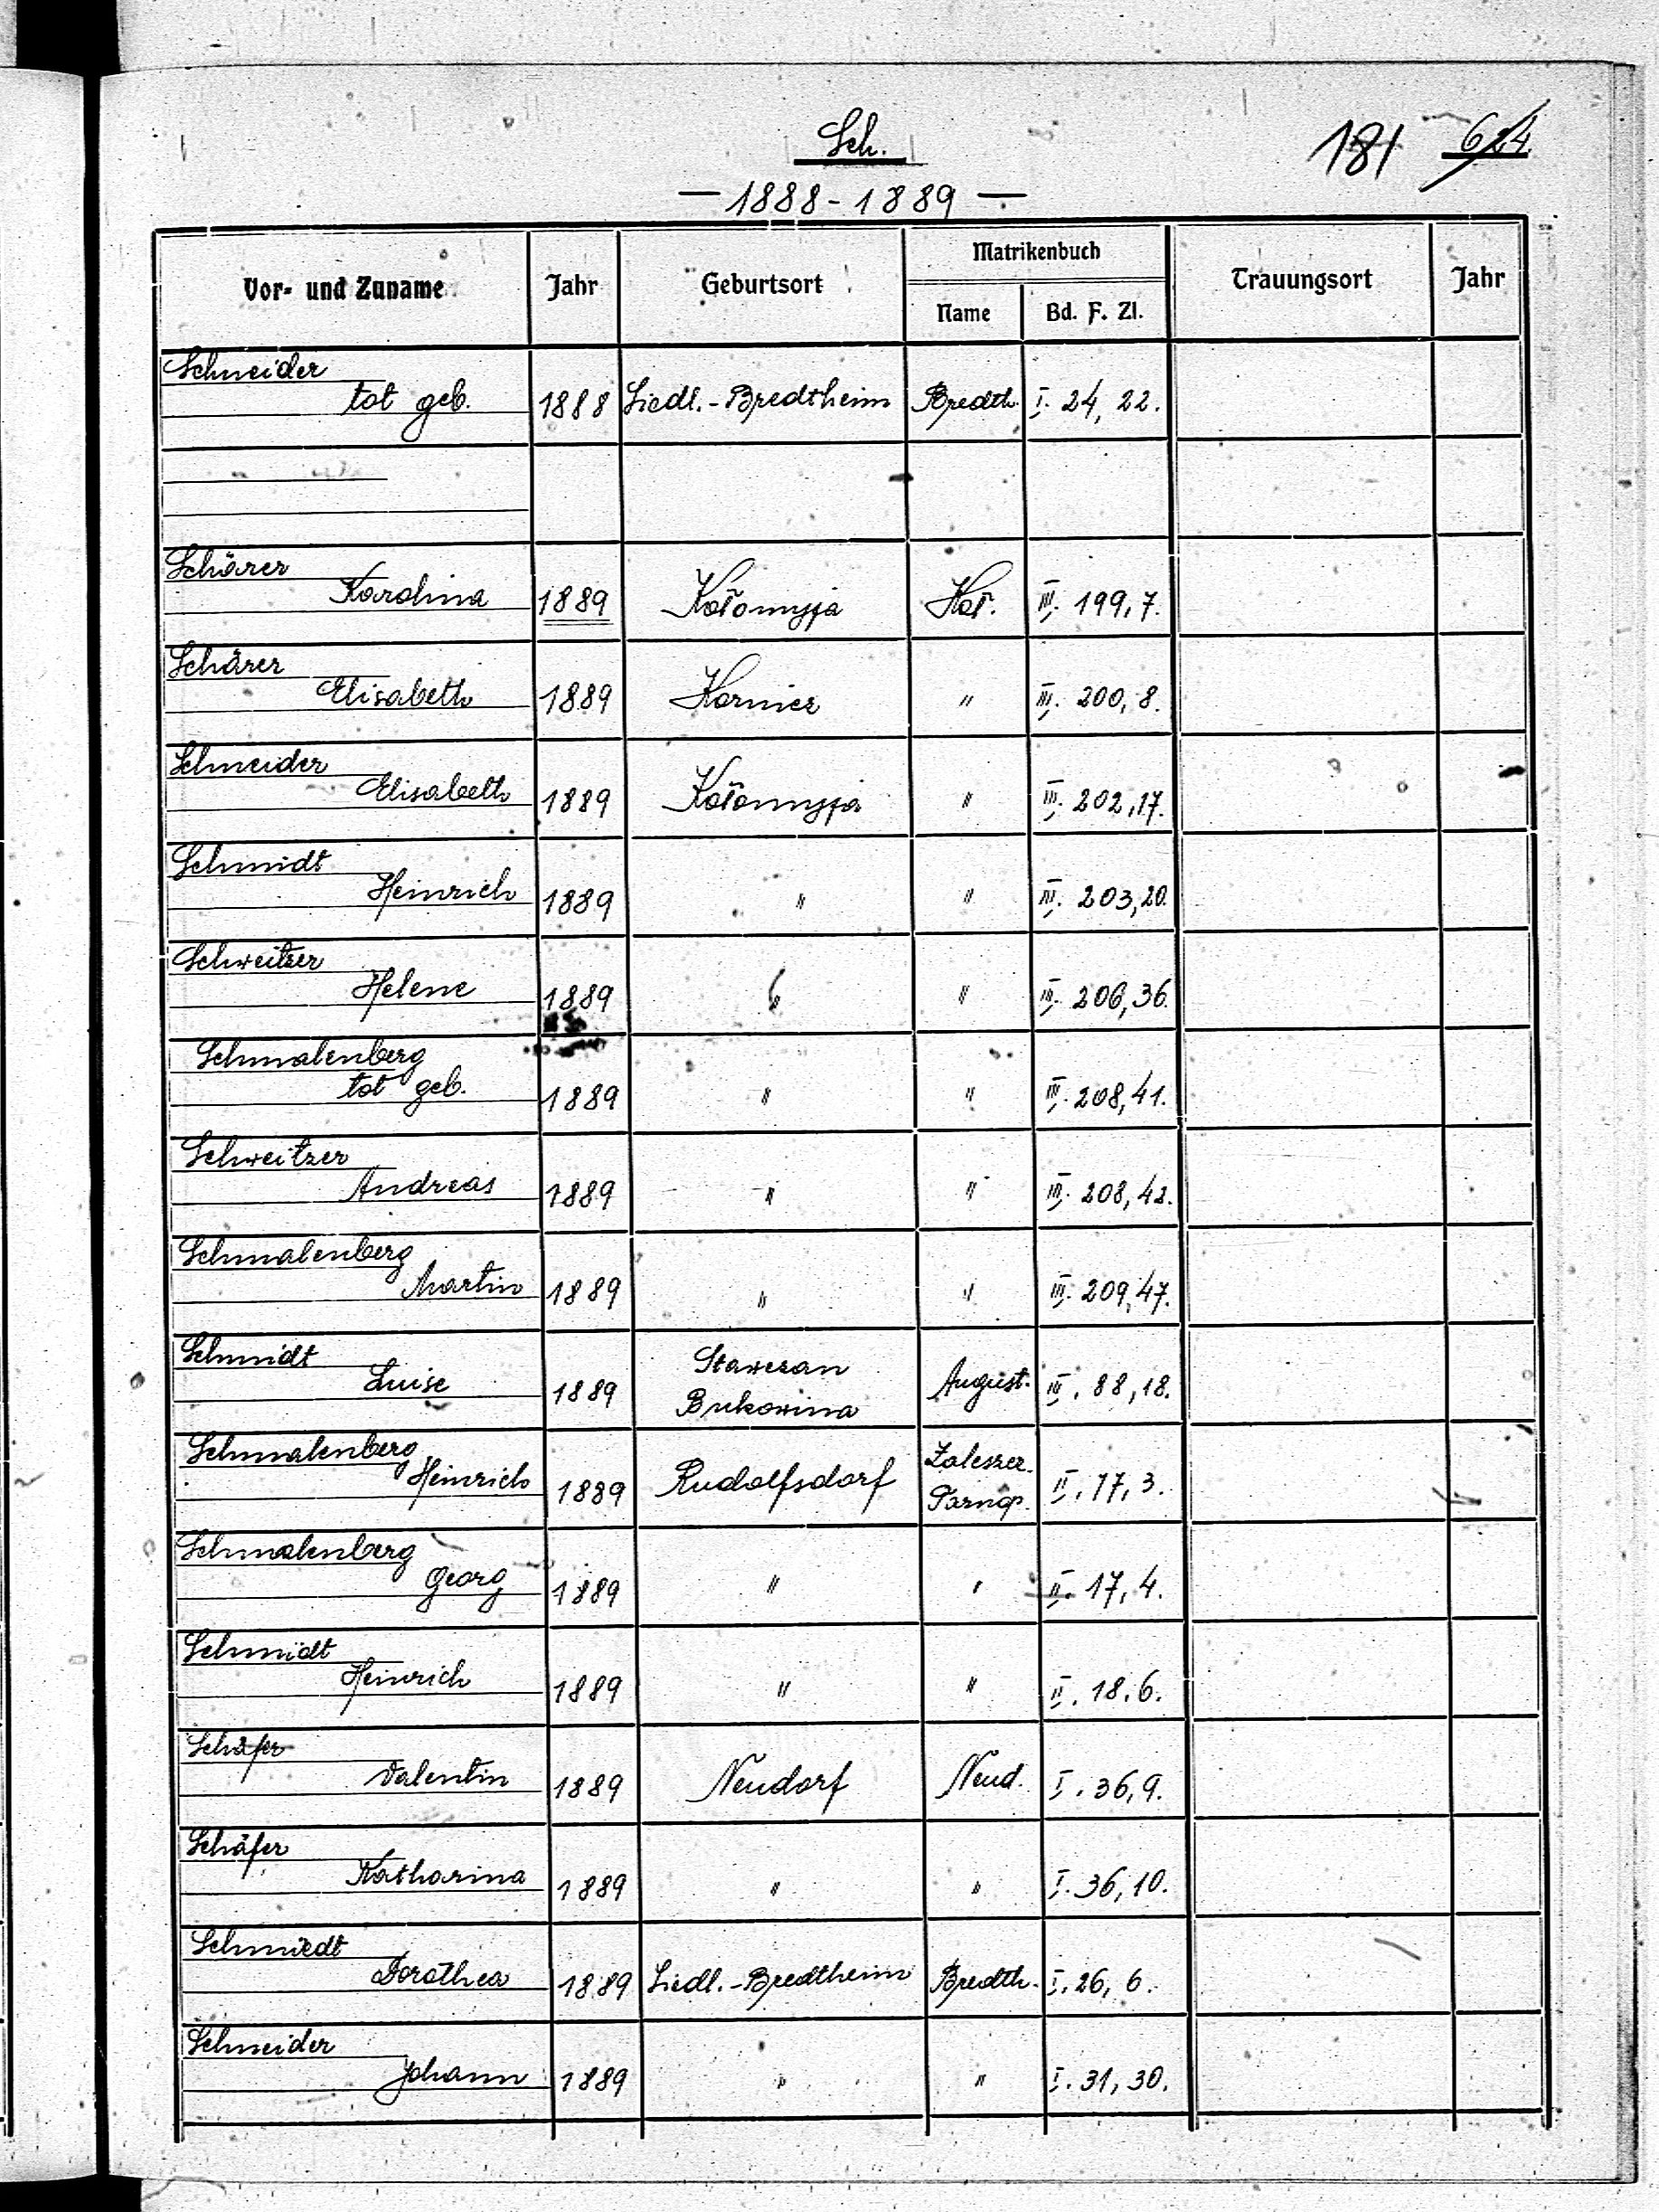 Sch.
181 624.
— 1888 - 1889 —
Vor- und Zuname Jahr Geburtsort Matrikenbuch Trauungsort Jahr
Name Bd. F. Zl.
Schneider
tot geb. 1888 Siedl.-Bredtheim Bredth. I. 24, 22.
Schärer
Karolina 1889 Kołomyja Koł. III. 199, 7.
Schärer
Elisabeth 1889 Kornicz " III. 200, 8.
Schneider
Elisabeth 1889 Kołomyja " III. 202, 17.
Schmidt
Heinrich 1889 " " III. 203, 20.
Schweitzer
Helene 1889 " " III. 206, 36.
Schmalenberg
tot geb. 1889 " " III. 208, 41.
Schweitzer
Andreas 1889 " " III. 208, 42.
Schmalenberg
Martin 1889 " " III. 209, 47.
Schmidt
Luise 1889 Stawczan Bukowina August. III. 88, 18.
Schmalenberg
Heinrich 1889 Rudolfsdorf Zaleszcz. Tarnop. II. 17, 3.
Schmalenberg
Georg 1889 " " II. 17, 4.
Schmidt
Heinrich 1889 " " II. 18. 6.
Schäfer
Valentin 1889 Neudorf Neud. I. 36, 9.
Schäfer
Katharina 1889 " " I. 36, 10.
Schmiedt
Dorothea 1889 Siedl.-Bredtheim Bredth. I. 26, 6.
Schneider
Johann 1889 " " I. 31, 30.